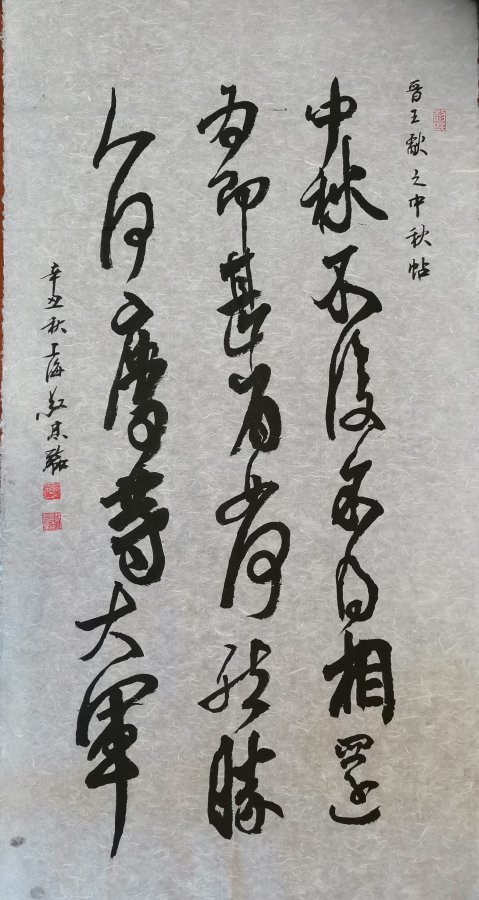 晋王献之中秋帖
中秋不復不得相還
為即甚省如何然勝
人何慶等大軍
辛丑秋上海